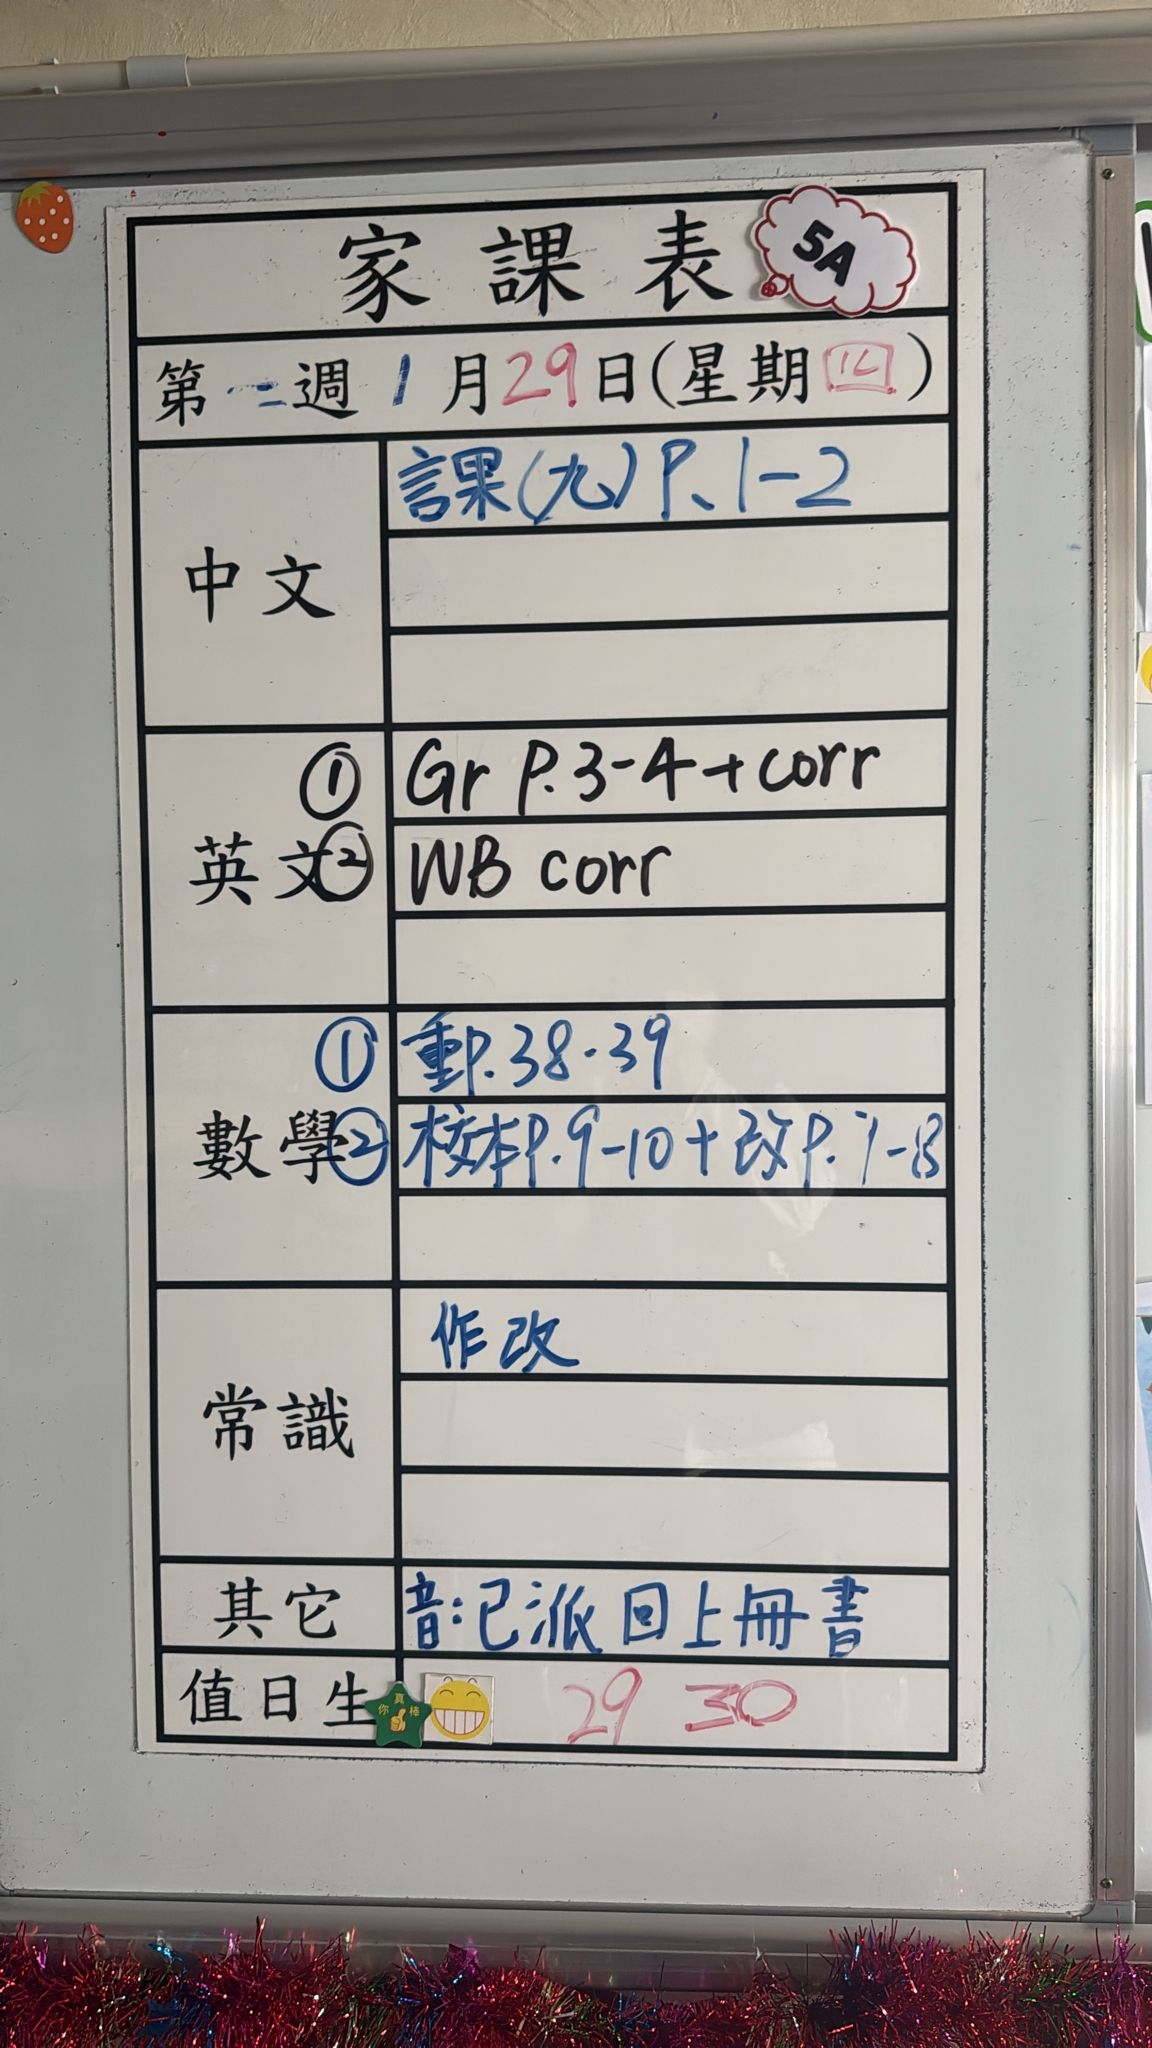 家課表 5A
第二週 1月29日(星期四)
中文
課(九)P.1-2
英文
① Gr P.3-4+corr
② WB corr
數學
① 重P.38-39
② 校本P.9-10+改P.7-8
常識
作改
其它
音:已派回上冊書
值日生 你真棒 29 30